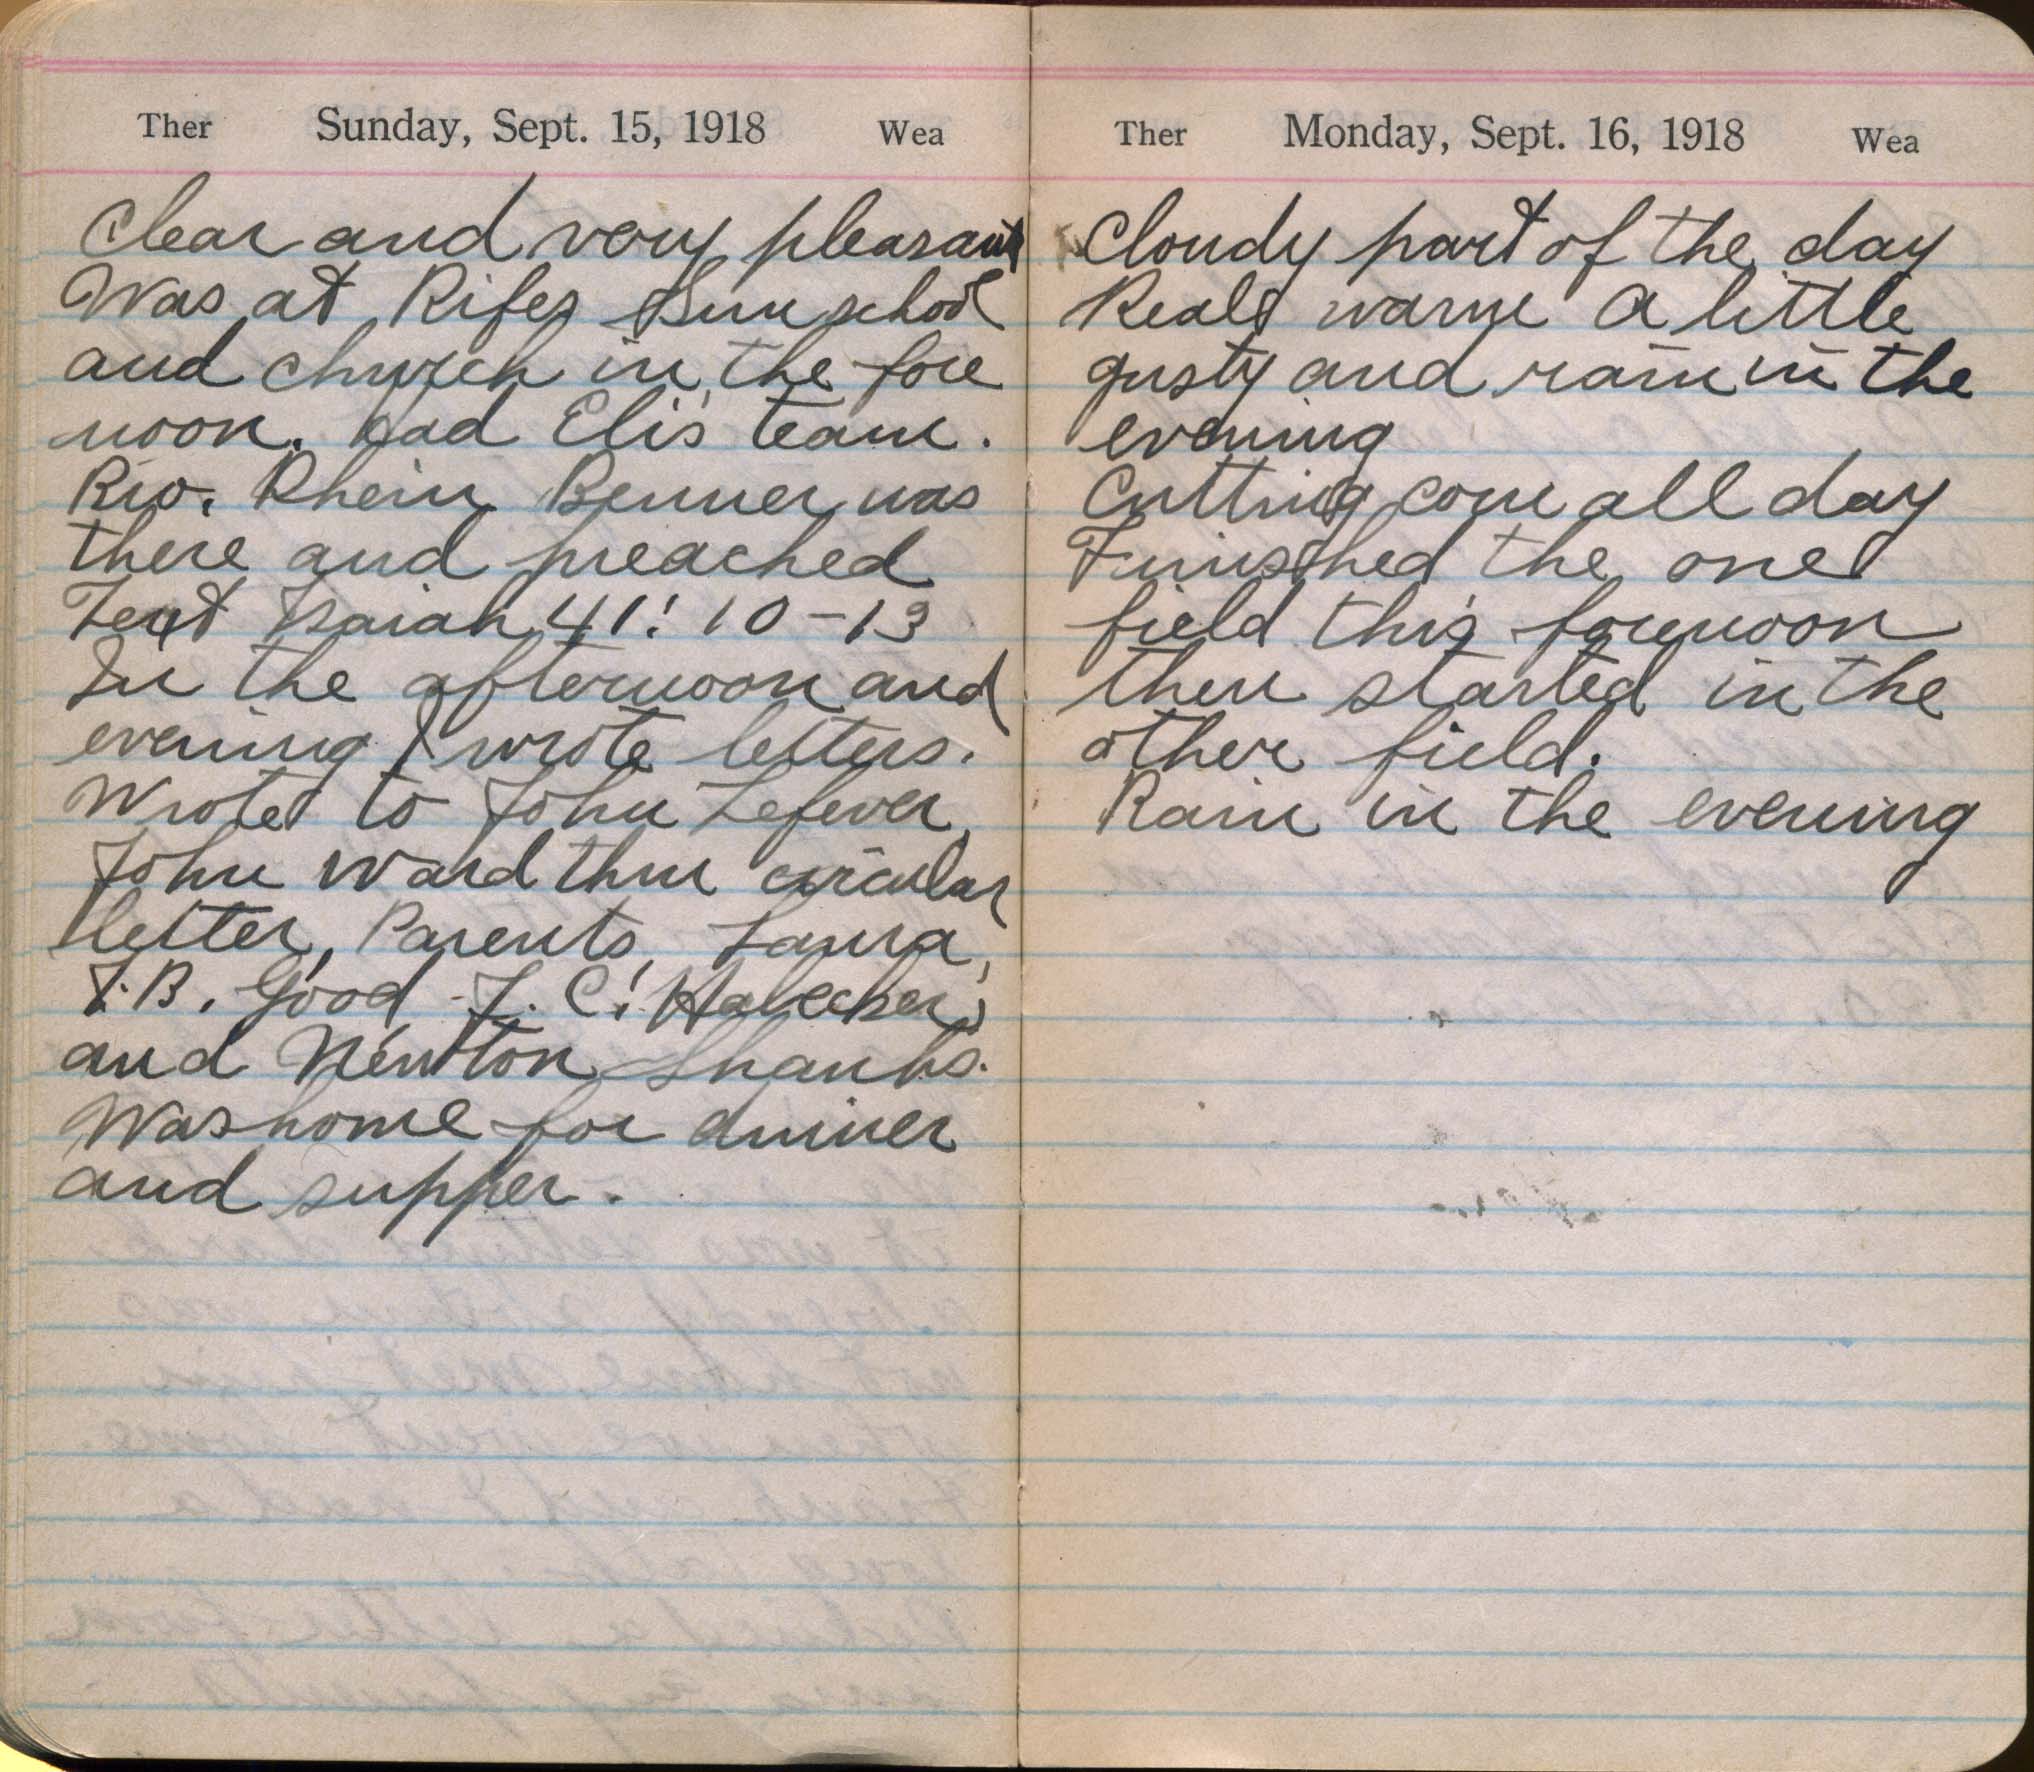 Ther Sunday, Sept. 15, 1918 Wea
Clear and very pleasant
Was at Rifes Sun school
and church in the fore
noon. had Eli's team.
Rhein Benner was
there and preached
Text Isaiah 41: 10-13
In the afternoon and
evening I wrote letters.
Wrote to John Lefever,
John Ward thru circular
letter, Parents, Laura,
Good
and Newton Shanks.
Was home for dinner
and supper.
Ther Monday, Sept. 16, 1918 Wea
Cloudy part of the day
Real warm a little
gusty and rain in the
evening
Cutting corn all day
Finished the one
field this forenoon
then started in the
other field.
Rain in the evening